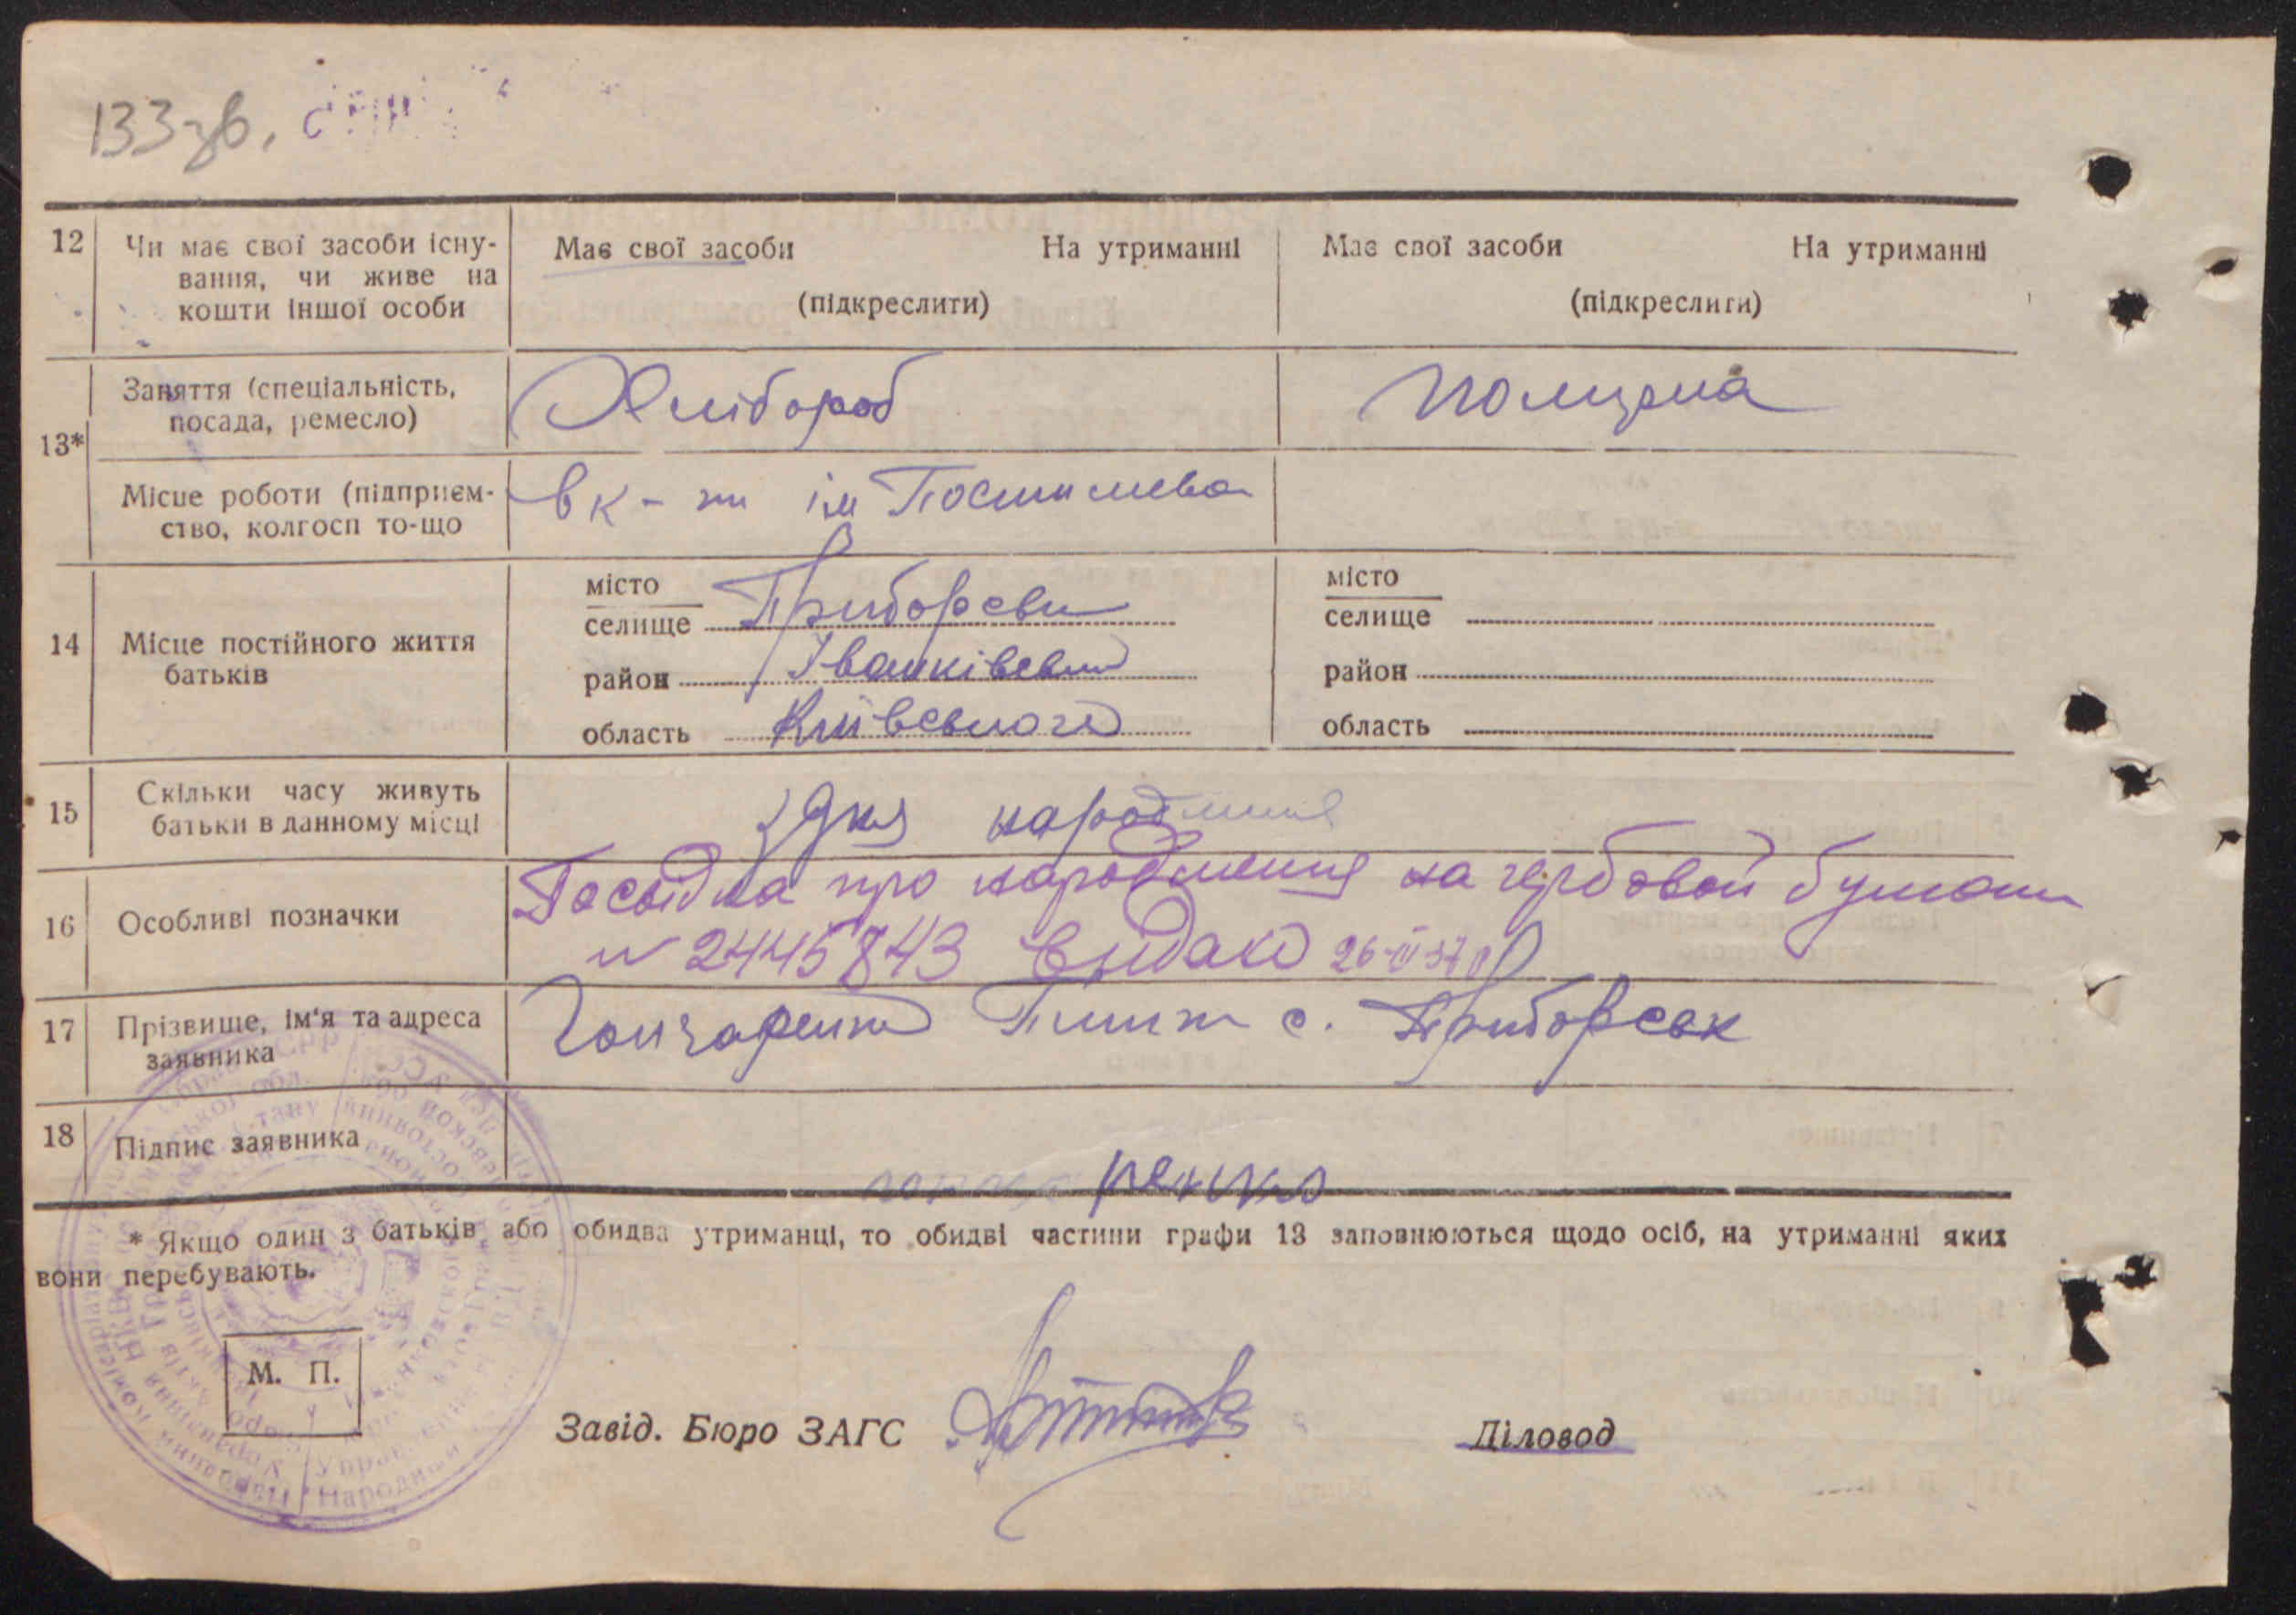 133 зв.
12 Чи має свої засоби існу-
вання, чи живе на
кошти іншої особи
Має свої засоби На утриманні
(підкреслити)
Має свої засоби На утриманні
(підкреслити)
13*
Заняття (спеціальність,
посада, ремесло)
Хлібороб
Місце роботи (підприєм-
ство, колгосп то-що
в к-ті ім Постишева
14 Місце постійного життя
батьків
місто
селище Приборськ
район Іванківськ
область Київського
місто
селище
район
область
15 Скільки часу живуть
батьки в данному місці
з дня народження
16 Особливі позначки
про народження на гербовой
№ 2445843
17 Прізвище, ім'я та адреса
заявника
Гончаренко с. Приборськ
18 Підпис заявника
* Якщо один з батьків або обидва утриманці, то обидві частини графи 13 заповнюються щодо осіб, на утриманні яких
вони перебувають.
М. П.
Завід. Бюро ЗАГС Діловод